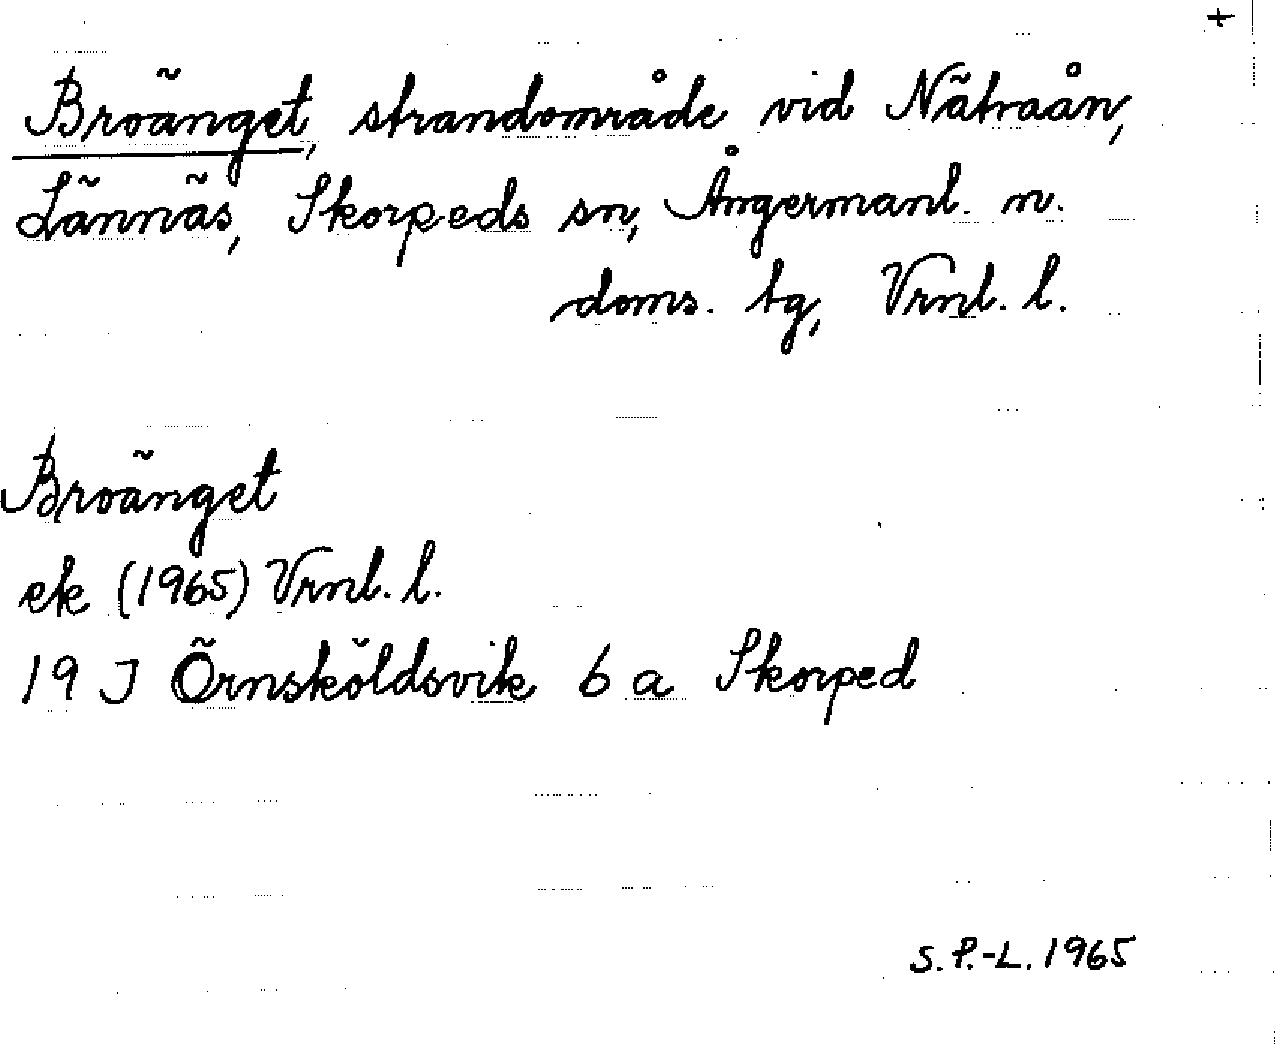 +
Broänget, strandområde vid Nätraån,
Lännäs, Skorpeds sn, Ångermanl. n.
doms. tg, Vrnl. l.
Broänget
ek (1965) Vrnl. l.
19 J Örnsköldsvik 6 a Skorped
S. P.-L. 1965